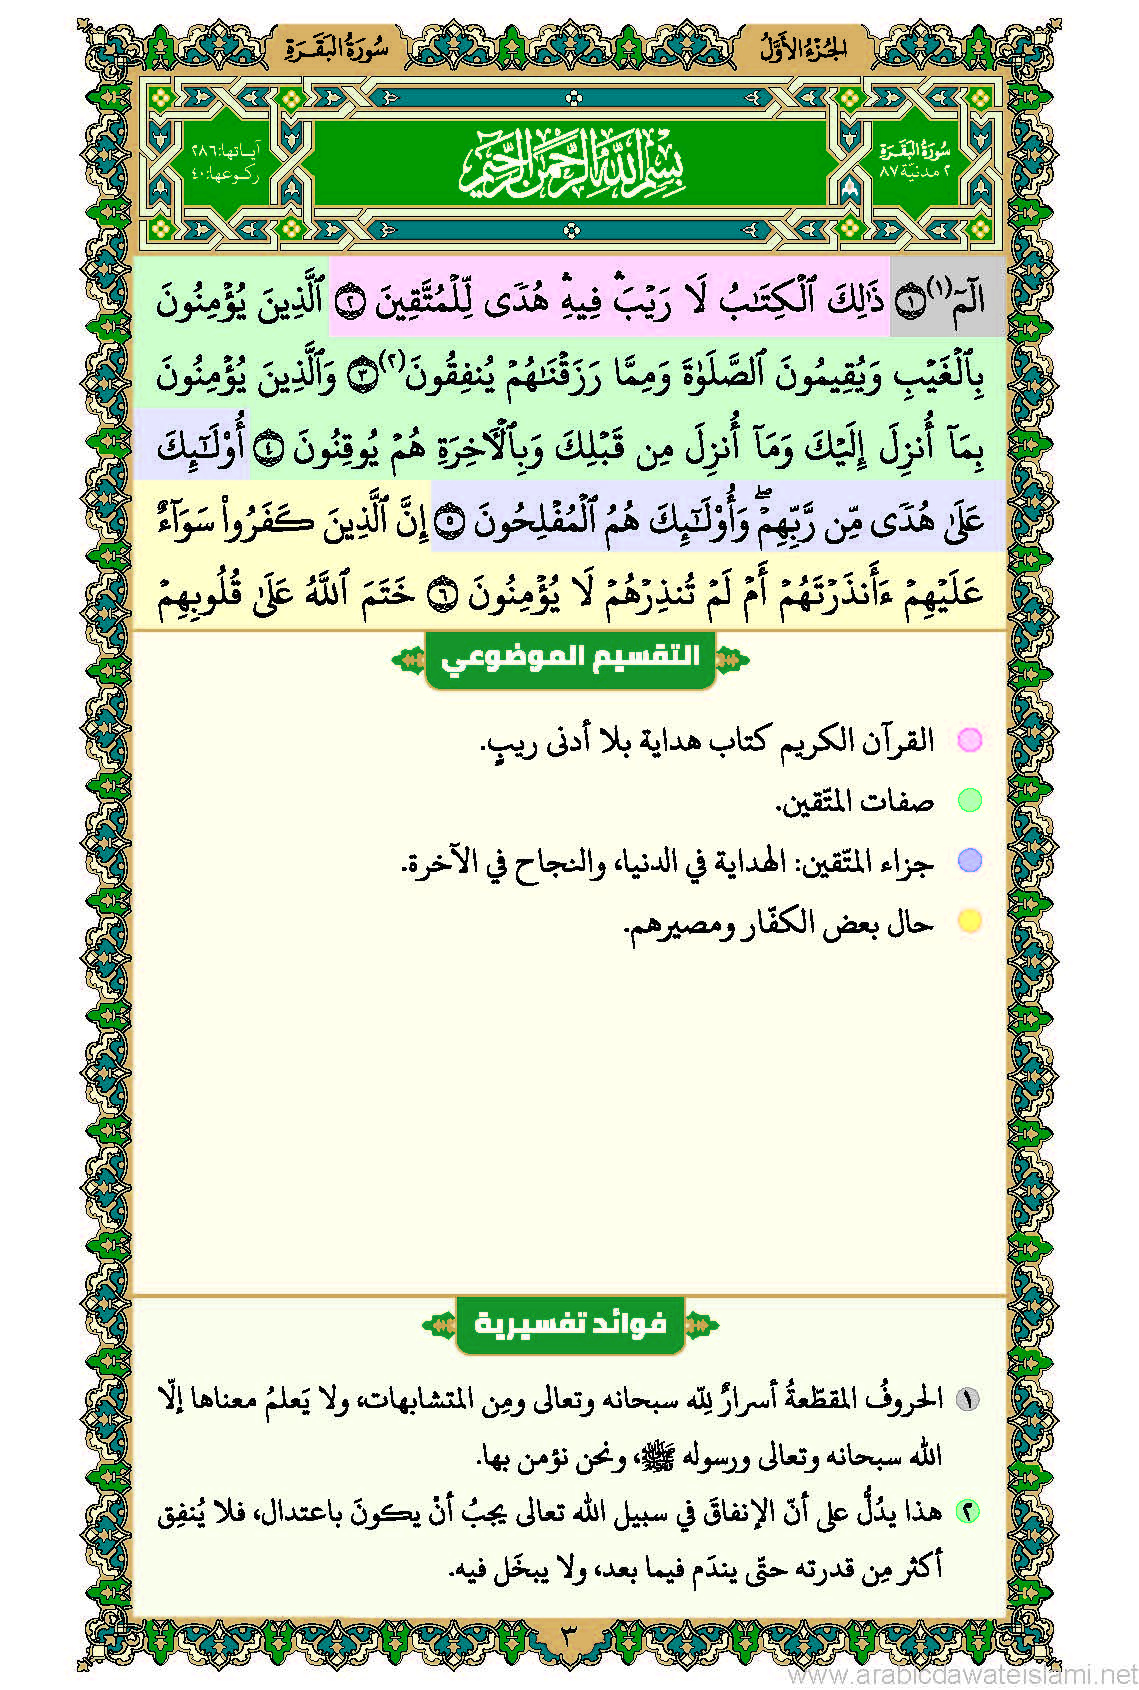 الجُزْءُ الأَوَّلُ
سُورَةُ البَقَرَةِ
سُورَةُ البَقَرَةِ
٢ مدنيّة ٨٧
بِسْمِ اللَّهِ الرَّحْمَنِ الرَّحِيمِ
آياتها:٢٨٦
ركوعها:٤٠
الٓمٓ(١) ١ ذَٰلِكَ ٱلْكِتَٰبُ لَا رَيْبَ ۛ فِيهِ ۛ هُدًى لِّلْمُتَّقِينَ ٢ ٱلَّذِينَ يُؤْمِنُونَ
بِٱلْغَيْبِ وَيُقِيمُونَ ٱلصَّلَوٰةَ وَمِمَّا رَزَقْنَٰهُمْ يُنفِقُونَ(٢) ٣ وَٱلَّذِينَ يُؤْمِنُونَ
بِمَآ أُنزِلَ إِلَيْكَ وَمَآ أُنزِلَ مِن قَبْلِكَ وَبِٱلْأٓخِرَةِ هُمْ يُوقِنُونَ ٤ أُوْلَٰٓئِكَ
عَلَىٰ هُدًى مِّن رَّبِّهِمْ ۖ وَأُوْلَٰٓئِكَ هُمُ ٱلْمُفْلِحُونَ ٥ إِنَّ ٱلَّذِينَ كَفَرُوا۟ سَوَآءٌ
عَلَيْهِمْ ءَأَنذَرْتَهُمْ أَمْ لَمْ تُنذِرْهُمْ لَا يُؤْمِنُونَ ٦ خَتَمَ ٱللَّهُ عَلَىٰ قُلُوبِهِمْ
التقسيم الموضوعي
القرآن الكريم كتاب هداية بلا أدنى ريبٍ.
صفات المتّقين.
جزاء المتّقين: الهداية في الدنيا، والنجاح في الآخرة.
حال بعض الكفّار ومصيرهم.
فوائد تفسيرية
١ الحروفُ المقطّعةُ أسرارٌ لِلّه سبحانه وتعالى ومِن المتشابهات، ولا يَعلمُ معناها إلّا
الله سبحانه وتعالى ورسوله ﷺ، ونحن نؤمن بها.
٢ هذا يدُلُّ على أنّ الإنفاقَ في سبيل الله تعالى يجبُ أنْ يكونَ باعتدال، فلا يُنفِق
أكثر مِن قدرته حتّى يندَم فيما بعد، ولا يبخَل فيه.
٣
www.arabicdawateislami.net